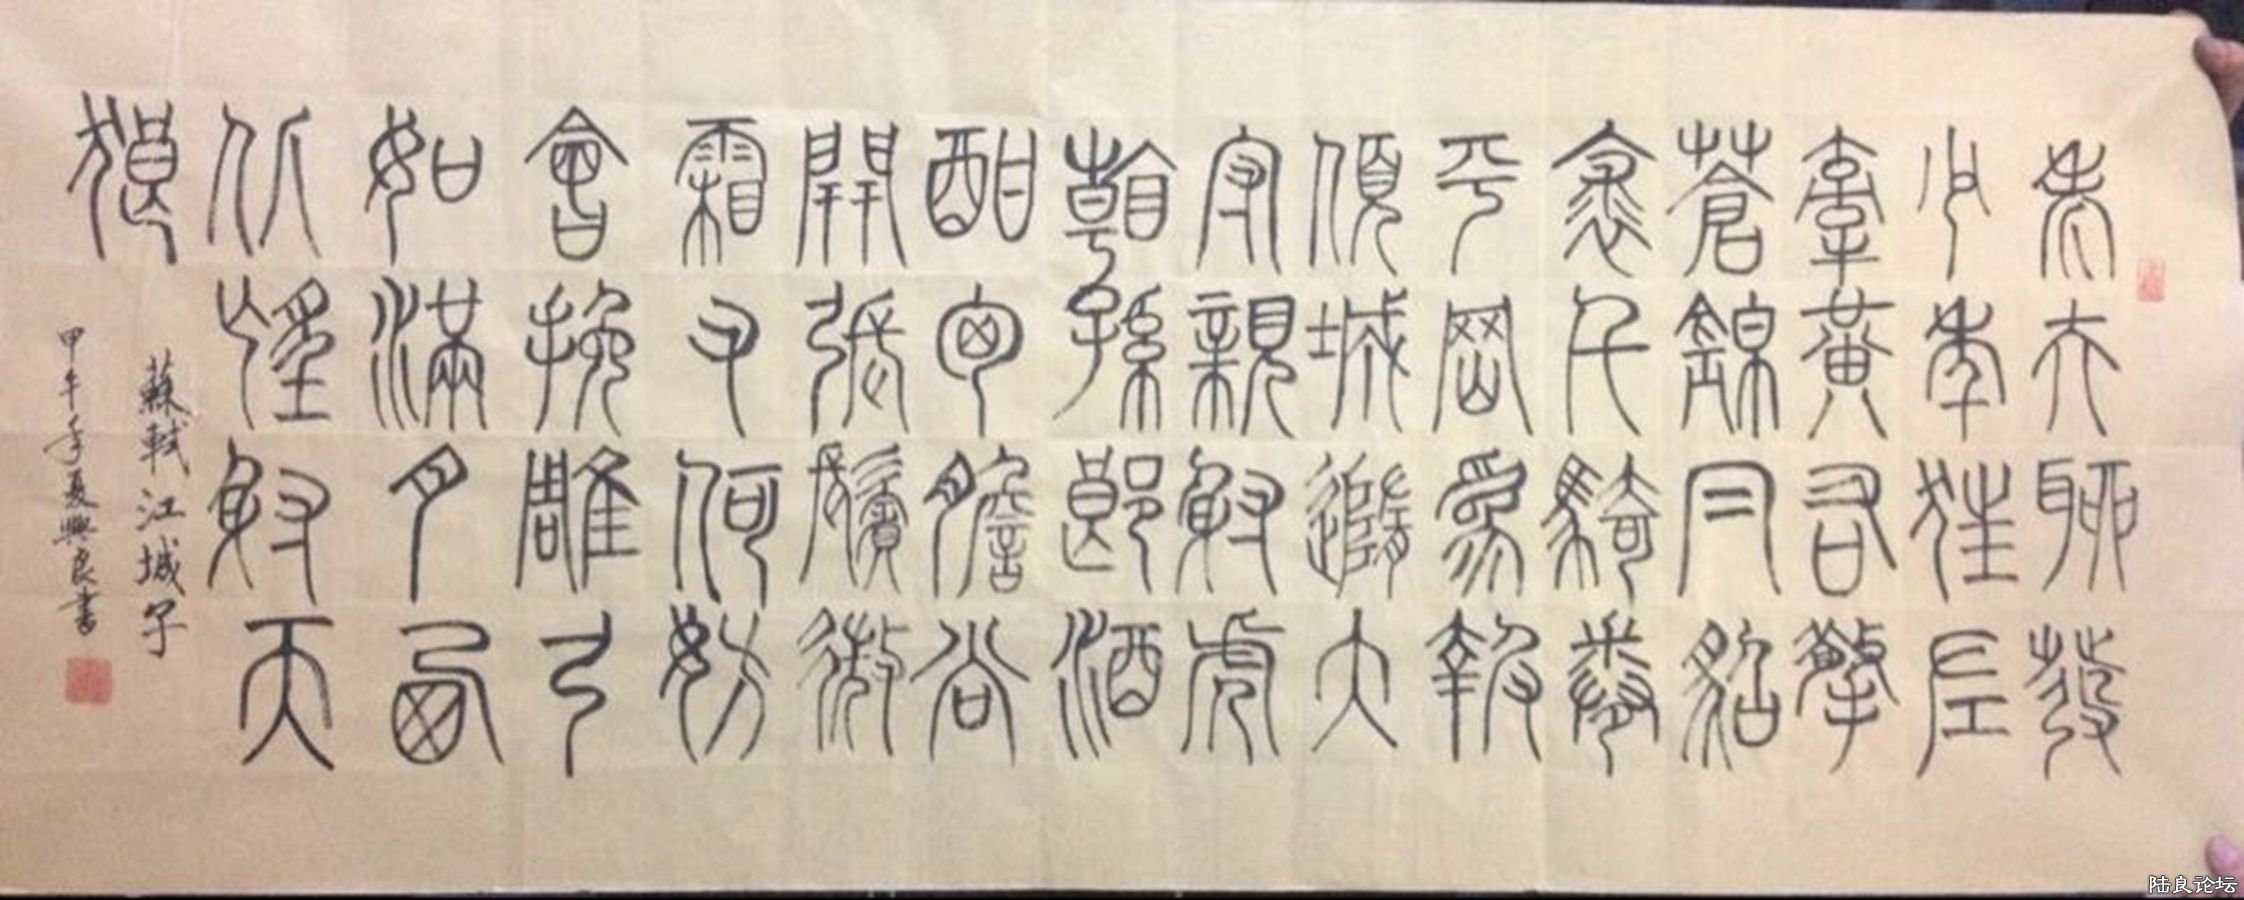 老夫聊發
少年狂左
牽黃右擎
蒼錦帽貂
裘千騎卷
平岡為報
傾城隨太
守親射虎
看孫郎酒
酣胸膽尚
開張鬢微
霜又何妨
會挽雕弓
如滿月西
北望射天
狼
蘇軾江城子
甲午年夏興良書
陆良论坛